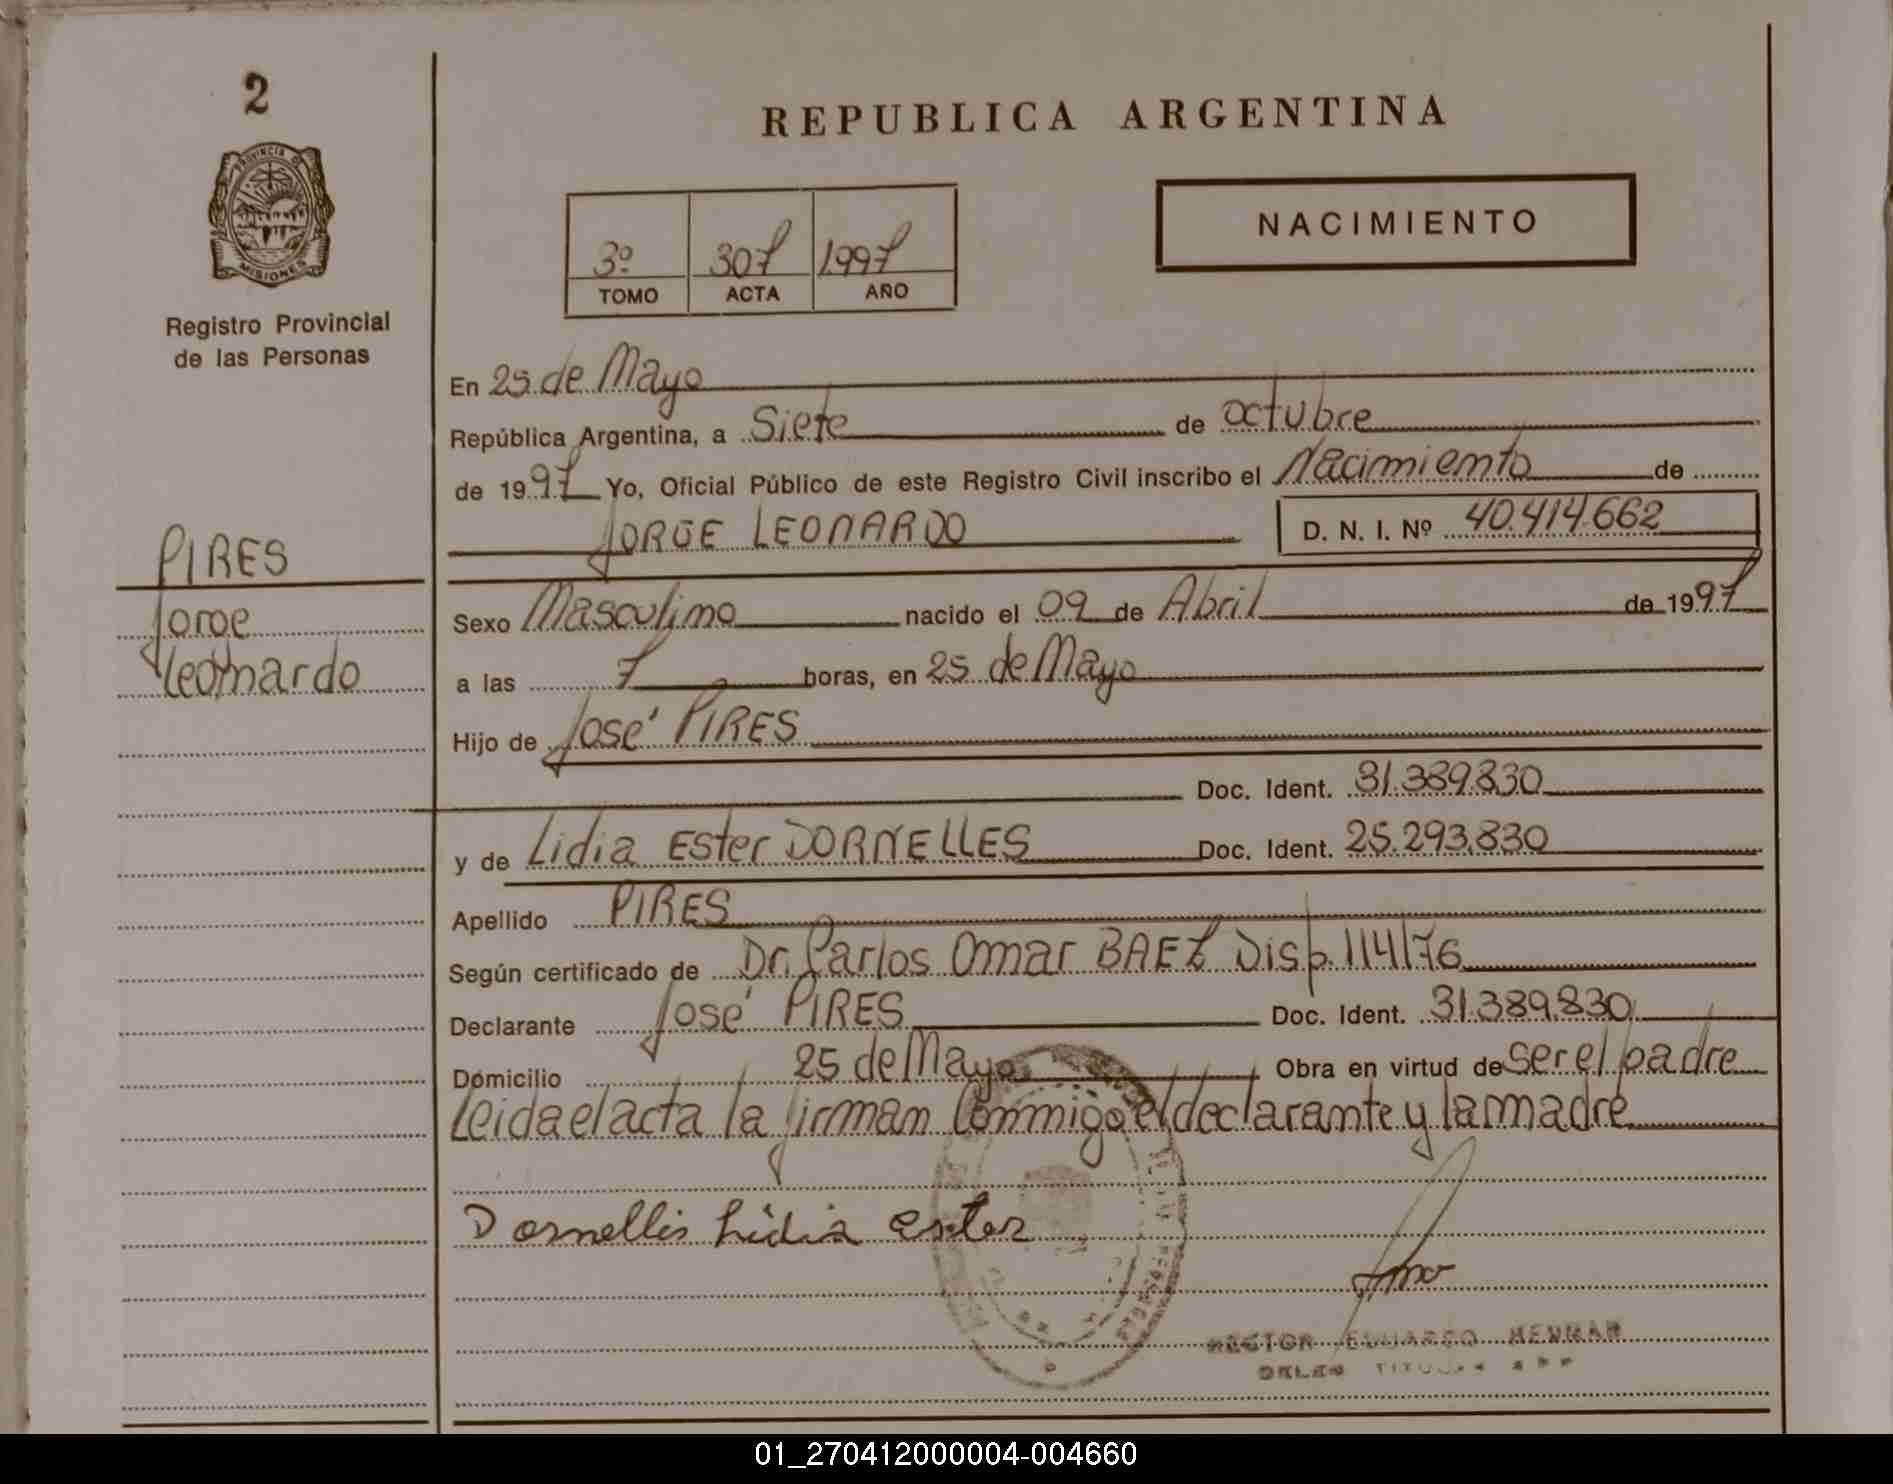 2
PROVINCIA DE
MISIONES
Registro Provincial
de las Personas
PIRES
Jorge
Leonardo
REPUBLICA ARGENTINA
NACIMIENTO
3º 307 1997
TOMO ACTA AÑO
En 25 de Mayo
República Argentina, a Siete de octubre
de 1997 Yo, Oficial Público de este Registro Civil inscribo el Nacimiento de
JORGE LEONARDO D. N. I. Nº 40.414.662
Sexo Masculino nacido el 09 de Abril de 1997
a las 7 horas, en 25 de Mayo
Hijo de José PIRES
Doc. Ident. 31.389.830
y de Lidia Ester DORNELLES Doc. Ident. 25.293.830
Apellido PIRES
Según certificado de Dr. Carlos Omar BAEZ Disp. 114/76
Declarante José PIRES Doc. Ident. 31.389.830
Domicilio 25 de Mayo Obra en virtud de ser el padre
Leida el acta la firman Conmigo el declarante y la madre
Dornellis Lidia ester
HECTOR EDUARDO
01_270412000004-004660